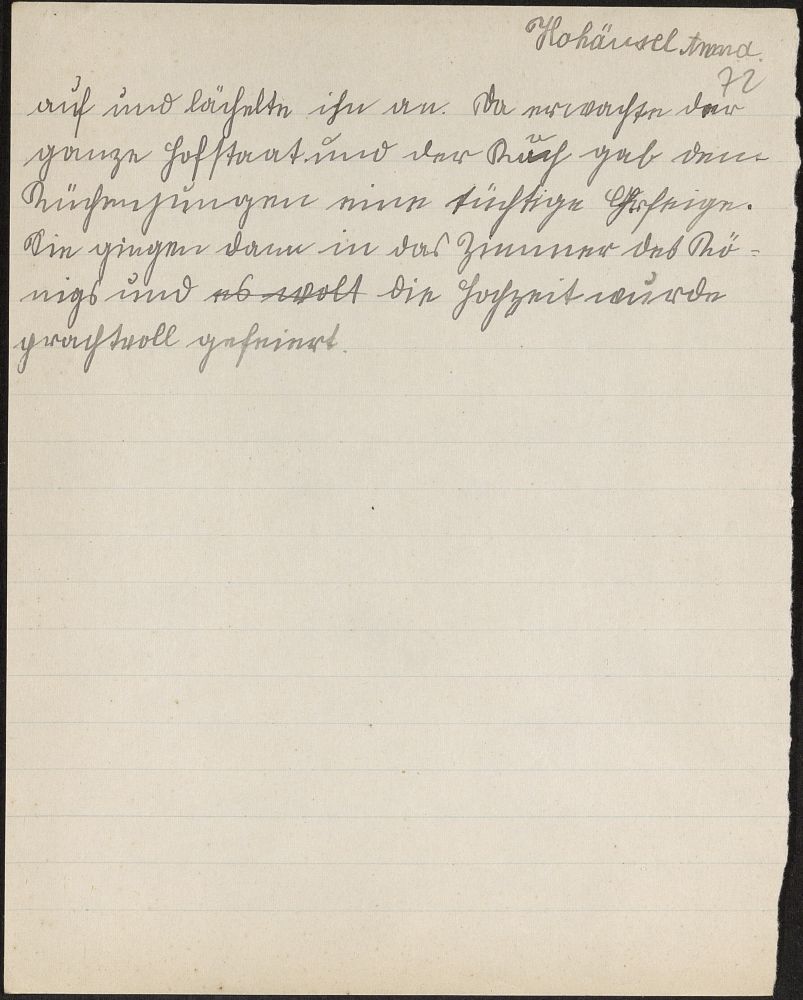 Hohäusel
72
auf und lächelte ihn an. Da erwachte der
ganze Hofstaat und der Kuch gab dem
Küchenjungen eine tüchtige Ohrfeige.
Sie gingen dann in das Zimmer des Kö-
nigs und es wolt die Hochzeit wurde
prachtvoll gefeiert.